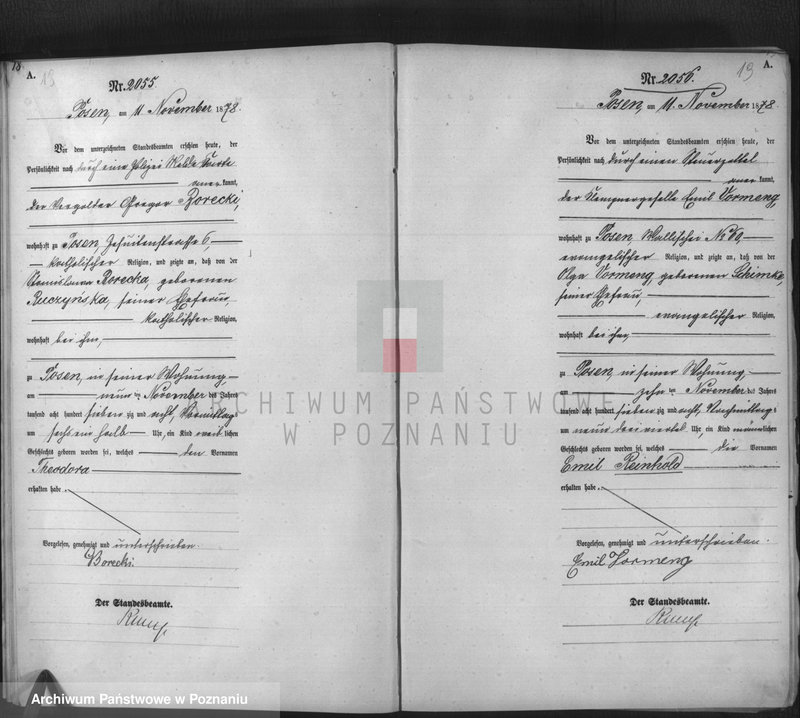 18.
A.
13
Nr. 2055.
Posen, am 11 November 1878.
Vor dem unterzeichneten Standesbeamten erschien heute, der
Persönlichkeit nach durch eine Polizei Melde Karte
aner kannt,
der Vergolder Gregor Borecki,
wohnhaft zu Posen, Jesuitenstrasse 6,
katholischer Religion, und zeigte an, daß von der
Stanislawa Borecka, geborenen
Ruczynska, seiner Ehefrau,
katholischer Religion,
wohnhaft bei ihm,
zu Posen, in seiner Wohnung,
am neun ten November des Jahres
tausend acht hundert sieben zig und acht, Vormittags
um sechs ein halb Uhr, ein Kind weib lichen
Geschlechts geboren worden sei, welches den Vornamen
Theodora
erhalten habe.
Vorgelesen, genehmigt und unterschrieben.
Borecki.
Der Standesbeamte.
Nr. 2056.
19
A.
Posen, am 11. November 1878
Vor dem unterzeichneten Standesbeamten erschien heute, der
Persönlichkeit nach durch einen Steuerzettel
aner kannt,
der Klempnergeselle Emil Vormeng,
wohnhaft zu Posen Wallischei No
evangelischer Religion, und zeigte an, daß von der
Olga Vormeng, geborenen Schimke,
seiner Ehefrau,
evangelischer Religion,
wohnhaft bei ihm,
zu Posen, in seiner Wohnung,
am zehn ten November des Jahres
tausend acht hundert sieben zig und acht, Nachmittags
um neun drei viertel Uhr, ein Kind männ lichen
Geschlechts geboren worden sei, welches die Vornamen
Emil Reinhold
erhalten habe.
Vorgelesen, genehmigt und unterschrieben.
Emil Vormeng
Der Standesbeamte.
ARCHIWUM PAŃSTWOWE
W POZNANIU
Archiwum Państwowe w Poznaniu